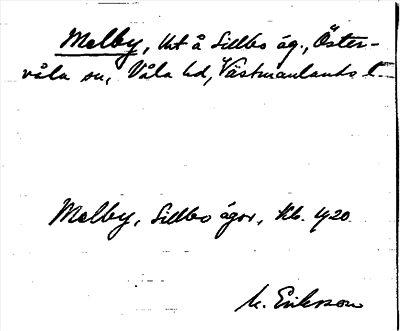 Melby, tht å Sillbo äg., Öster-
våla sn, Våla hd, Västmanlands l.
Melby, Sillbo ägor, Kb. 1920
M. Eriksson